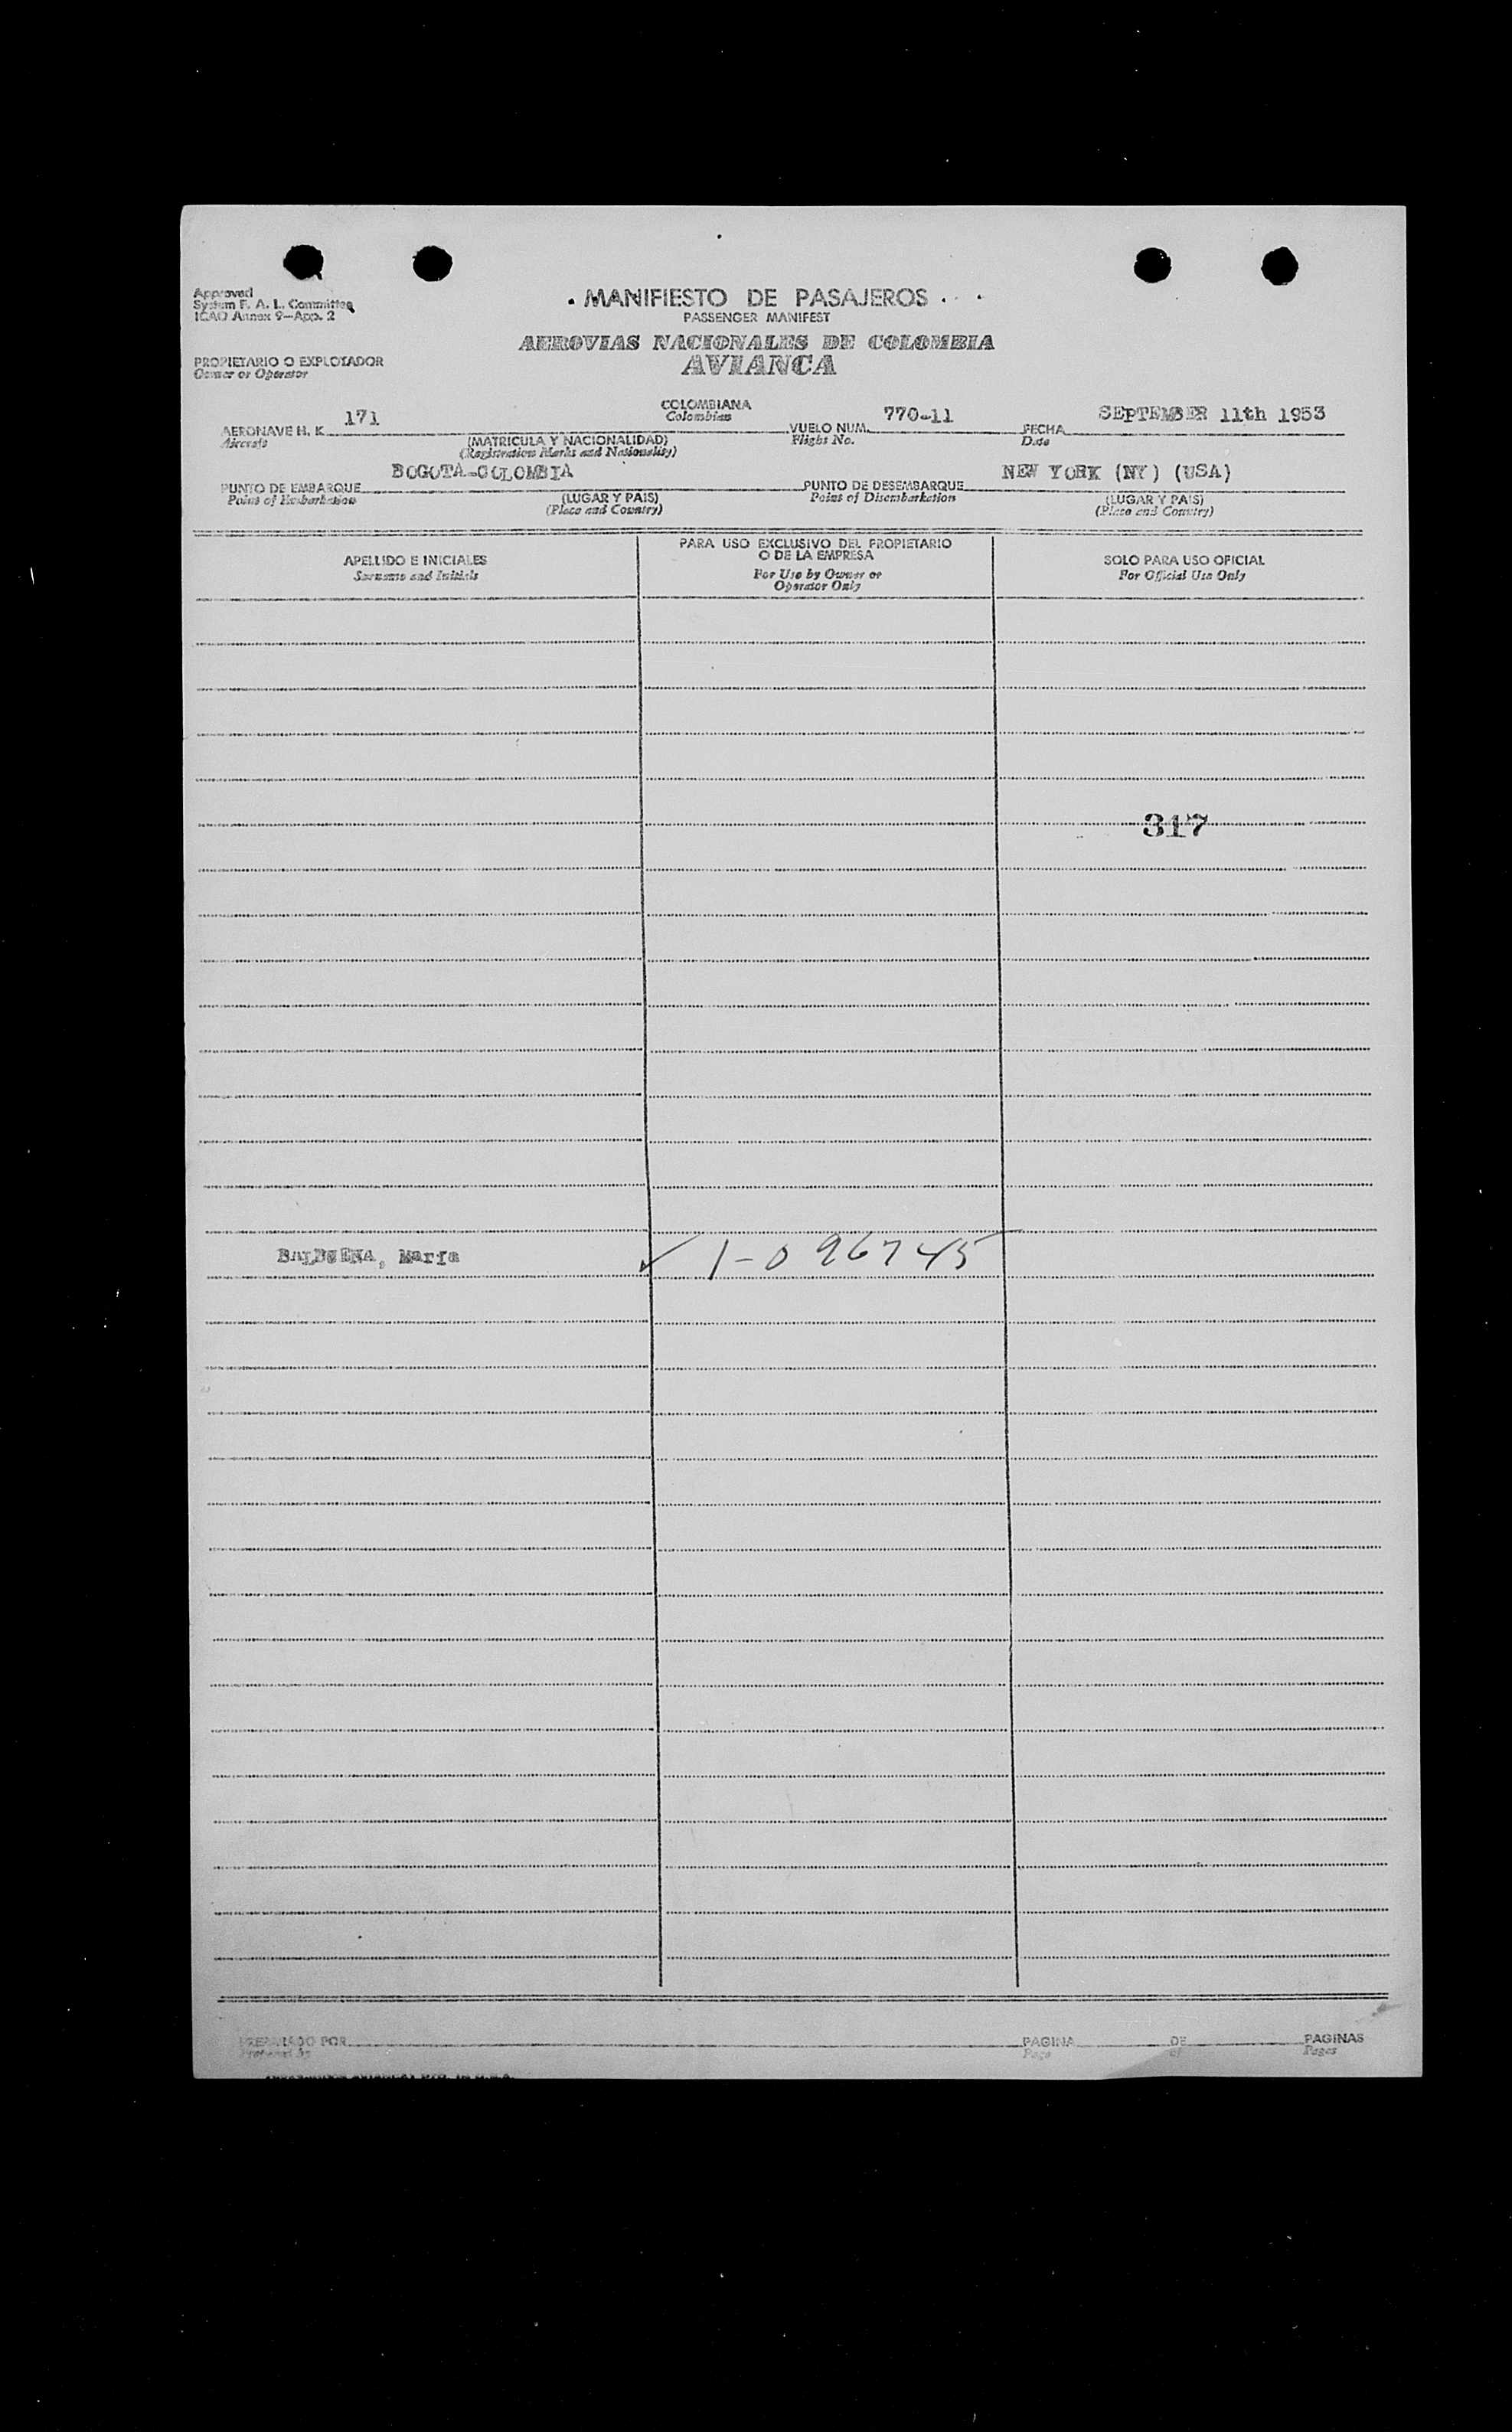 Approved
System F. A. L. Committee
ICAO Annex 9—App. 2
MANIFIESTO DE PASAJEROS
PASSENGER MANIFEST
AEROVIAS NACIONALES DE COLOMBIA
AVIANCA
PROPIETARIO O EXPLOTADOR
Owner or Operator
AERONAVE H. K. 171 COLOMBIANA VUELO NUM. 770-11 FECHA SEPTEMBER 11th 1953
Aircraft Colombian Flight No. Date
(MATRICULA Y NACIONALIDAD)
(Registration Marks and Nationality)
PUNTO DE EMBARQUE BOGOTA-COLOMBIA PUNTO DE DESEMBARQUE NEW YORK (NY) (USA)
Point of Embarkation (LUGAR Y PAIS) Point of Disembarkation (LUGAR Y PAIS)
(Place and Country) (Place and Country)
APELLIDO E INICIALES
Surname and Initials
PARA USO EXCLUSIVO DEL PROPIETARIO
O DE LA EMPRESA
For Use by Owner or
Operator Only
SOLO PARA USO OFICIAL
For Official Use Only
317
BALBUENA, Maria ✓ 1-0 96745
PREPARADO POR PAGINA DE PAGINAS
Prepared by Page of Pages